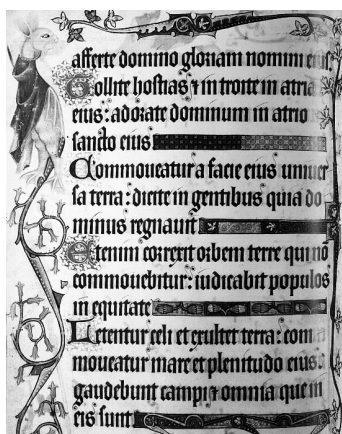 afferte domino gloriam nomini eius
Tollite hostias ⁊ introite in atria
eius: adorate dominum in atrio
sancto eius
Commoveatur a facie eius univer
sa terra: dicite in gentibus quia do
minus regnavit
Etenim correxit orbem terre qui nō
commovebitur: iudicabit populos
in equitate
Letentur celi et exultet terra: com
moveatur mare et plenitudo eius.
gaudebunt campi ⁊ omnia que in
eis sunt